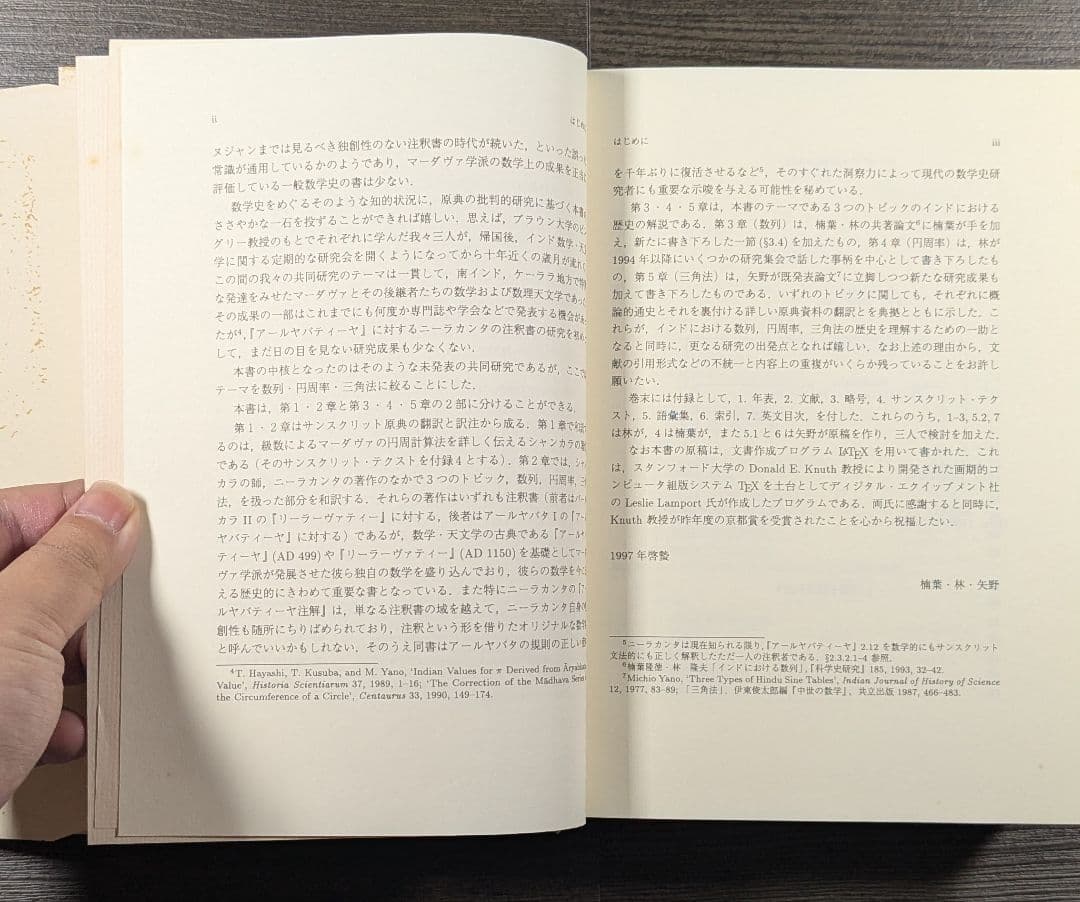 ii
はじめに
ヌジャンまでは見るべき独創性のない注釈書の時代が続いた，といった誤った
常識が通用しているかのようであり，マーダヴァ学派の数学上の成果を正当に
評価している一般数学史の書は少ない．
数学史をめぐるそのような知的状況に，原典の批判的研究に基づく本書が
ささやかな一石を投ずることができれば嬉しい．思えば，ブラウン大学のピン
グリー教授のもとでそれぞれに学んだ我々三人が，帰国後，インド数学・天文
学に関する定期的な研究会を開くようになってから十年近くの歳月が流れた．
この間の我々の共同研究のテーマは一貫して，南インド，ケーララ地方で
な発達をみせたマーダヴァとその後継者たちの数学および数理天文学であった．
その成果の一部はこれまでにも何度か専門誌や学会などで発表する機会があっ
たが⁴，『アールヤバティーヤ』に対するニーラカンタの注釈書の研究を初めと
して，まだ日の目を見ない研究成果も少なくない．
本書の中核となったのはそのような未発表の共同研究であるが，ここでは
テーマを数列・円周率・三角法に絞ることにした．
本書は，第１・２章と第３・４・５章の２部に分けることができる．
第１・２章はサンスクリット原典の翻訳と訳注から成る．第１章で和訳す
るのは，級数によるマーダヴァの円周計算法を詳しく伝えるシャンカラの
である（そのサンスクリット・テクストを付録４とする）．第２章では，シャン
カラの師，ニーラカンタの著作のなかで３つのトピック，数列，円周率，三角
法，を扱った部分を和訳する．それらの著作はいずれも注釈書（前者はバース
カラ II の『リーラーヴァティー』に対する，後者はアールヤバタ I の『アール
ヤバティーヤ』に対する）であるが，数学・天文学の古典である『アールヤバ
ティーヤ』(AD 499) や『リーラーヴァティー』(AD 1150) を基礎としてマーダ
ヴァ学派が発展させた彼ら独自の数学を盛り込んでおり，彼らの数学を今に伝
える歴史的にきわめて重要な書となっている．また特にニーラカンタの『アー
ルヤバティーヤ注解』は，単なる注釈書の域を越えて，ニーラカンタ自身の独
創性も随所にちりばめられており，注釈という形を借りたオリジナルな数学書
と呼んでいいかもしれない．そのうえ同書はアールヤバタの規則の正しい
⁴T. Hayashi, T. Kusuba, and M. Yano, ‘Indian Values for π Derived from Āryabhaṭa's
Value’, Historia Scientiarum 37, 1989, 1–16; ‘The Correction of the Mādhava Series for
the Circumference of a Circle’, Centaurus 33, 1990, 149–174.
はじめに
iii
を千年ぶりに復活させるなど⁵，そのすぐれた洞察力によって現代の数学史研
究者にも重要な示唆を与える可能性を秘めている．
第３・４・５章は，本書のテーマである３つのトピックのインドにおける
歴史の解説である．第３章（数列）は，楠葉・林の共著論文⁶に楠葉が手を加
え，新たに書き下ろした一節 (§3.4) を加えたもの，第４章（円周率）は，林が
1994 年以降にいくつかの研究集会で話した事柄を中心として書き下ろしたも
の，第５章（三角法）は，矢野が既発表論文⁷に立脚しつつ新たな研究成果も
加えて書き下ろしたものである．いずれのトピックに関しても，それぞれに概
論的通史とそれを裏付ける詳しい原典資料の翻訳とを典拠とともに示した．こ
れらが，インドにおける数列，円周率，三角法の歴史を理解するための一助と
なると同時に，更なる研究の出発点となれば嬉しい．なお上述の理由から，文
献の引用形式などの不統一と内容上の重複がいくらか残っていることをお許し
願いたい．
巻末には付録として，1. 年表，2. 文献，3. 略号，4. サンスクリット・テク
スト，5. 語彙集，6. 索引，7. 英文目次，を付した．これらのうち，1–3, 5.2, 7
は林が，4 は楠葉が，また 5.1 と 6 は矢野が原稿を作り，三人で検討を加えた．
なお本書の原稿は，文書作成プログラム LATEX を用いて書かれた．これ
は，スタンフォード大学の Donald E. Knuth 教授により開発された画期的コ
ンピュータ組版システム TEX を土台としてディジタル・エクイップメント社
の Leslie Lamport 氏が作成したプログラムである．両氏に感謝すると同時に，
Knuth 教授が昨年度の京都賞を受賞されたことを心から祝福したい．
1997 年啓蟄
楠葉・林・矢野
⁵ニーラカンタは現在知られる限り，『アールヤバティーヤ』2.12 を数学的にもサンスクリット
文法的にも正しく解釈したただ一人の注釈者である．§2.3.2.1–4 参照．
⁶楠葉隆徳・林　隆夫「インドにおける数列」，『科学史研究』185, 1993, 32–42.
⁷Michio Yano, ‘Three Types of Hindu Sine Tables’, Indian Journal of History of Science
12, 1977, 83–89; 「三角法」，伊東俊太郎編『中世の数学』，共立出版 1987, 466–483.